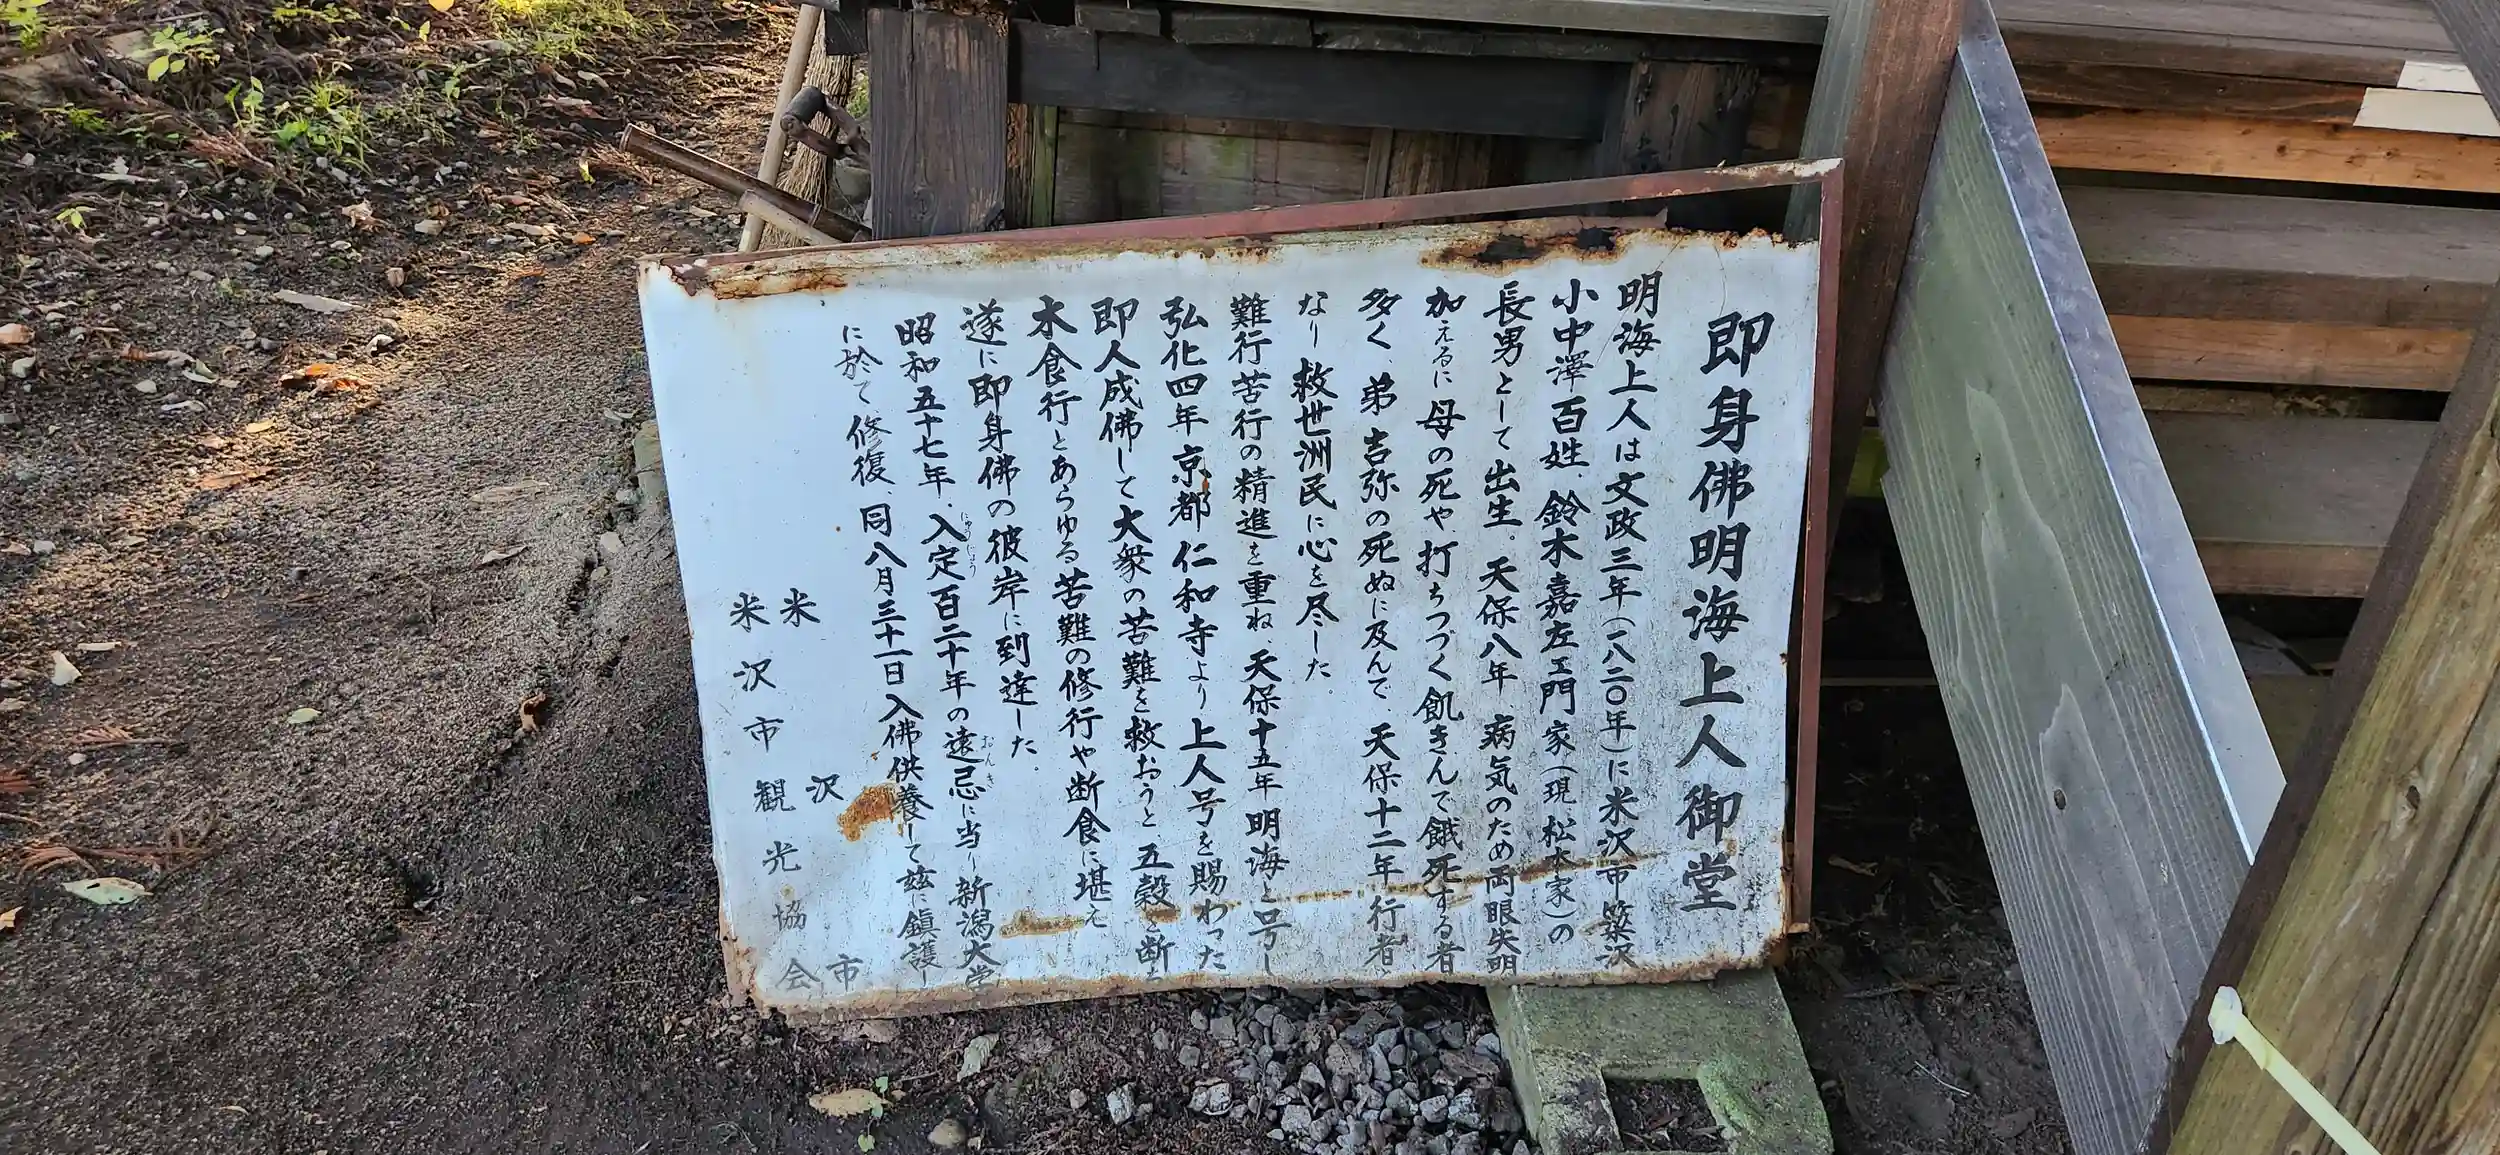 即身佛明海上人御堂
明海上人は文政三年(一八二〇年)に米沢市簗沢
小中澤百姓、鈴木嘉左ェ門家(現松本家)の
長男として出生。天保八年、病気のため両眼失明
加えるに母の死や打ちつづく飢きんで餓死する者
多く、弟吉弥の死ぬに及んで、天保十二年行者
なり救世洲民に心を尽した。
難行苦行の精進を重ね、天保十五年明海と号し
弘化四年京都仁和寺より上人号を賜わった
即人成佛して大衆の苦難を救おうと、五穀を断
木食行とあらゆる苦難の修行や断食に堪え
遂に即身佛の彼岸に到達した。
昭和五十七年、入定百二十年の遠忌に当り新潟大学
にゅうじょう
おんき
に於て修復、同八月三十一日入佛供養して茲に鎭護し
米沢市
米沢市観光協会